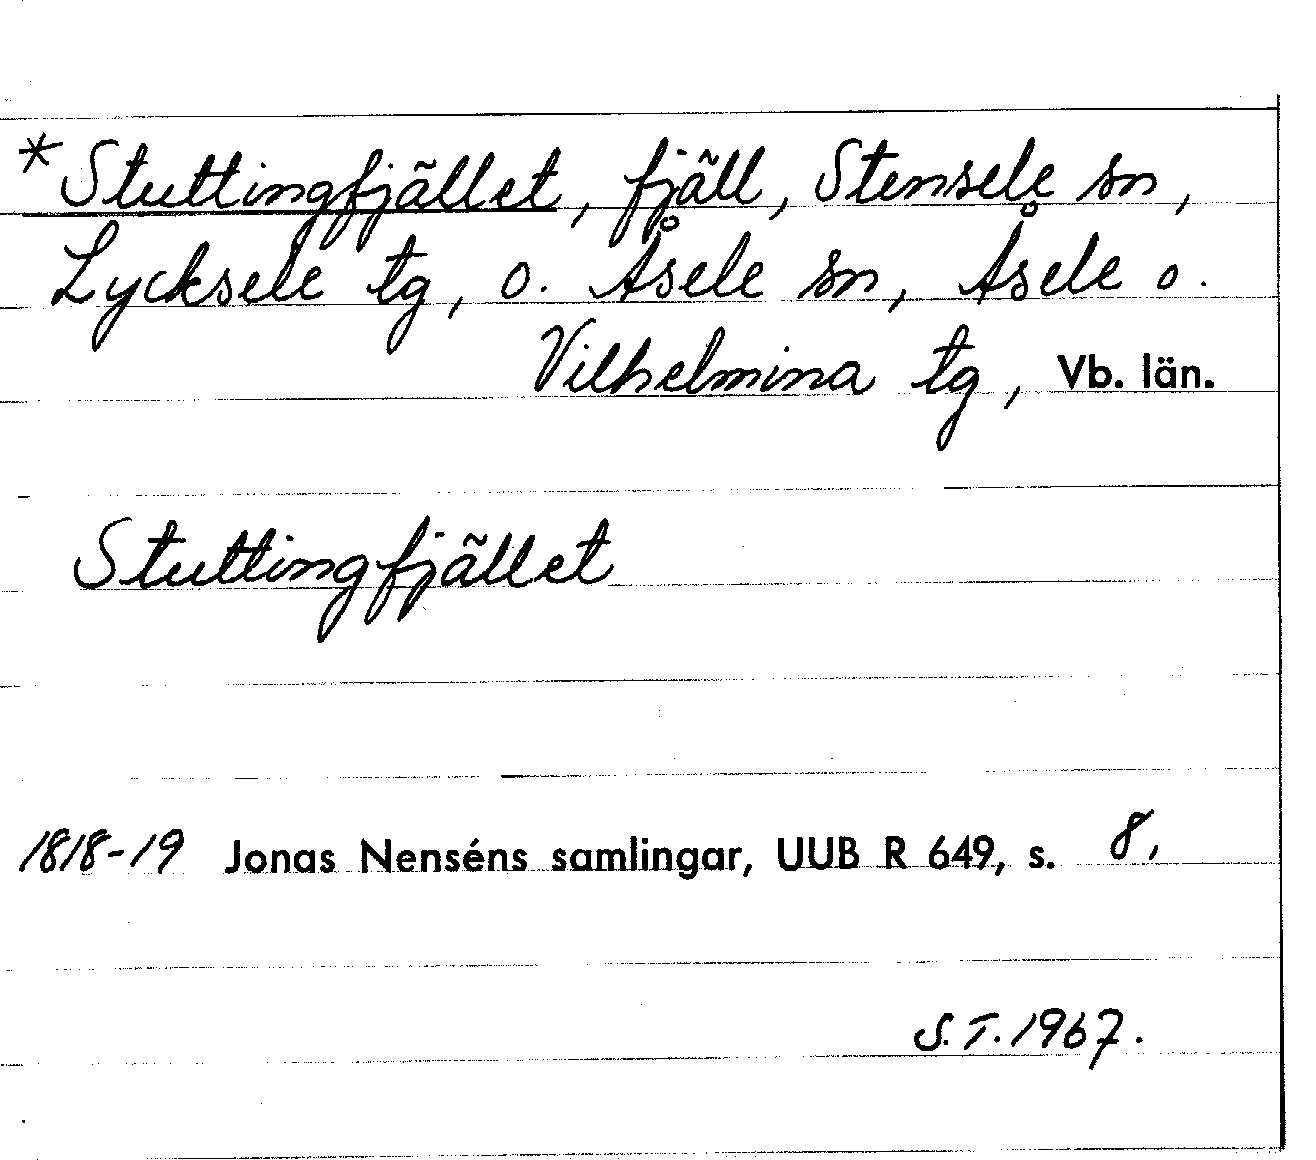 *Stuttingfjället, fjäll, Stensele sn,
Lycksele tg, o. Åsele sn, Åsele o.
Vilhelmina tg, Vb. län.
Stuttingfjället
1818-19 Jonas Nenséns samlingar, UUB R 649, s. 8,
S.T. 1967.